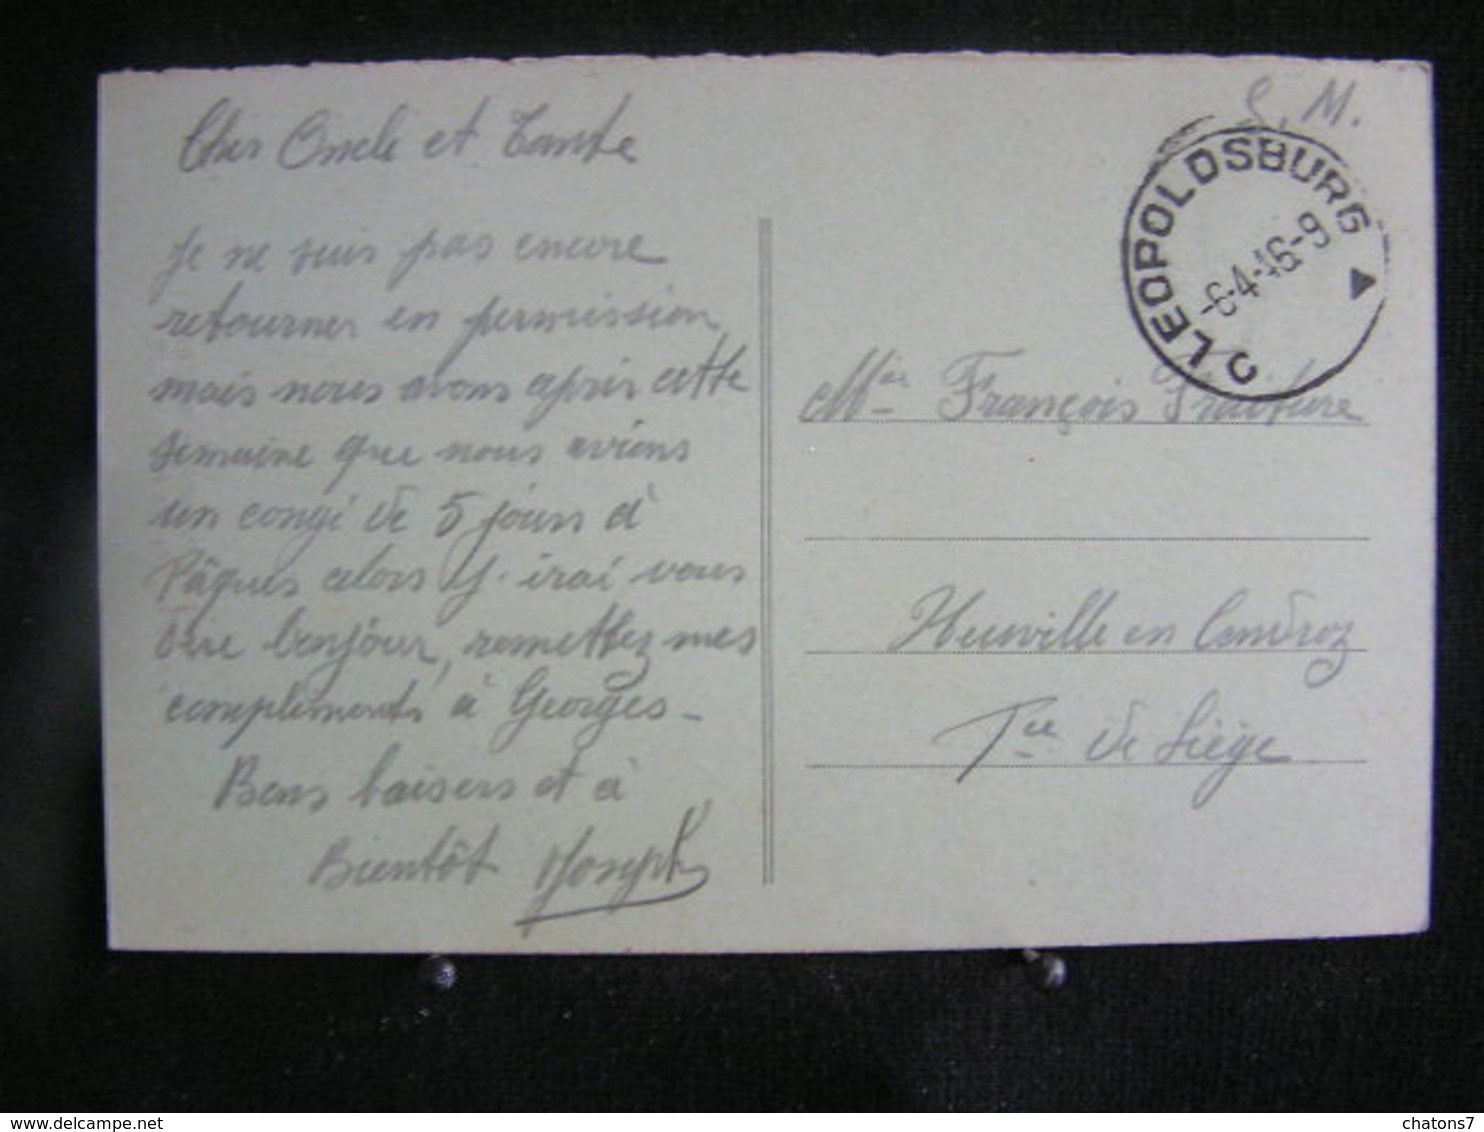 Cher Oncle et Tante
Je ne suis pas encore
retourner en permission,
mais nous avons appris cette
semaine que nous avions
un congé de 5 jours à
Pâques alors j'irai vous
dire bonjour, remettez mes
compliments à Georges -
Bons baisers et à
Bientôt Joseph
S. M.
LEOPOLDSBURG
-6-4-46-9
François
Neuville en Condroz
de Liège
delcampe.net
chatons7